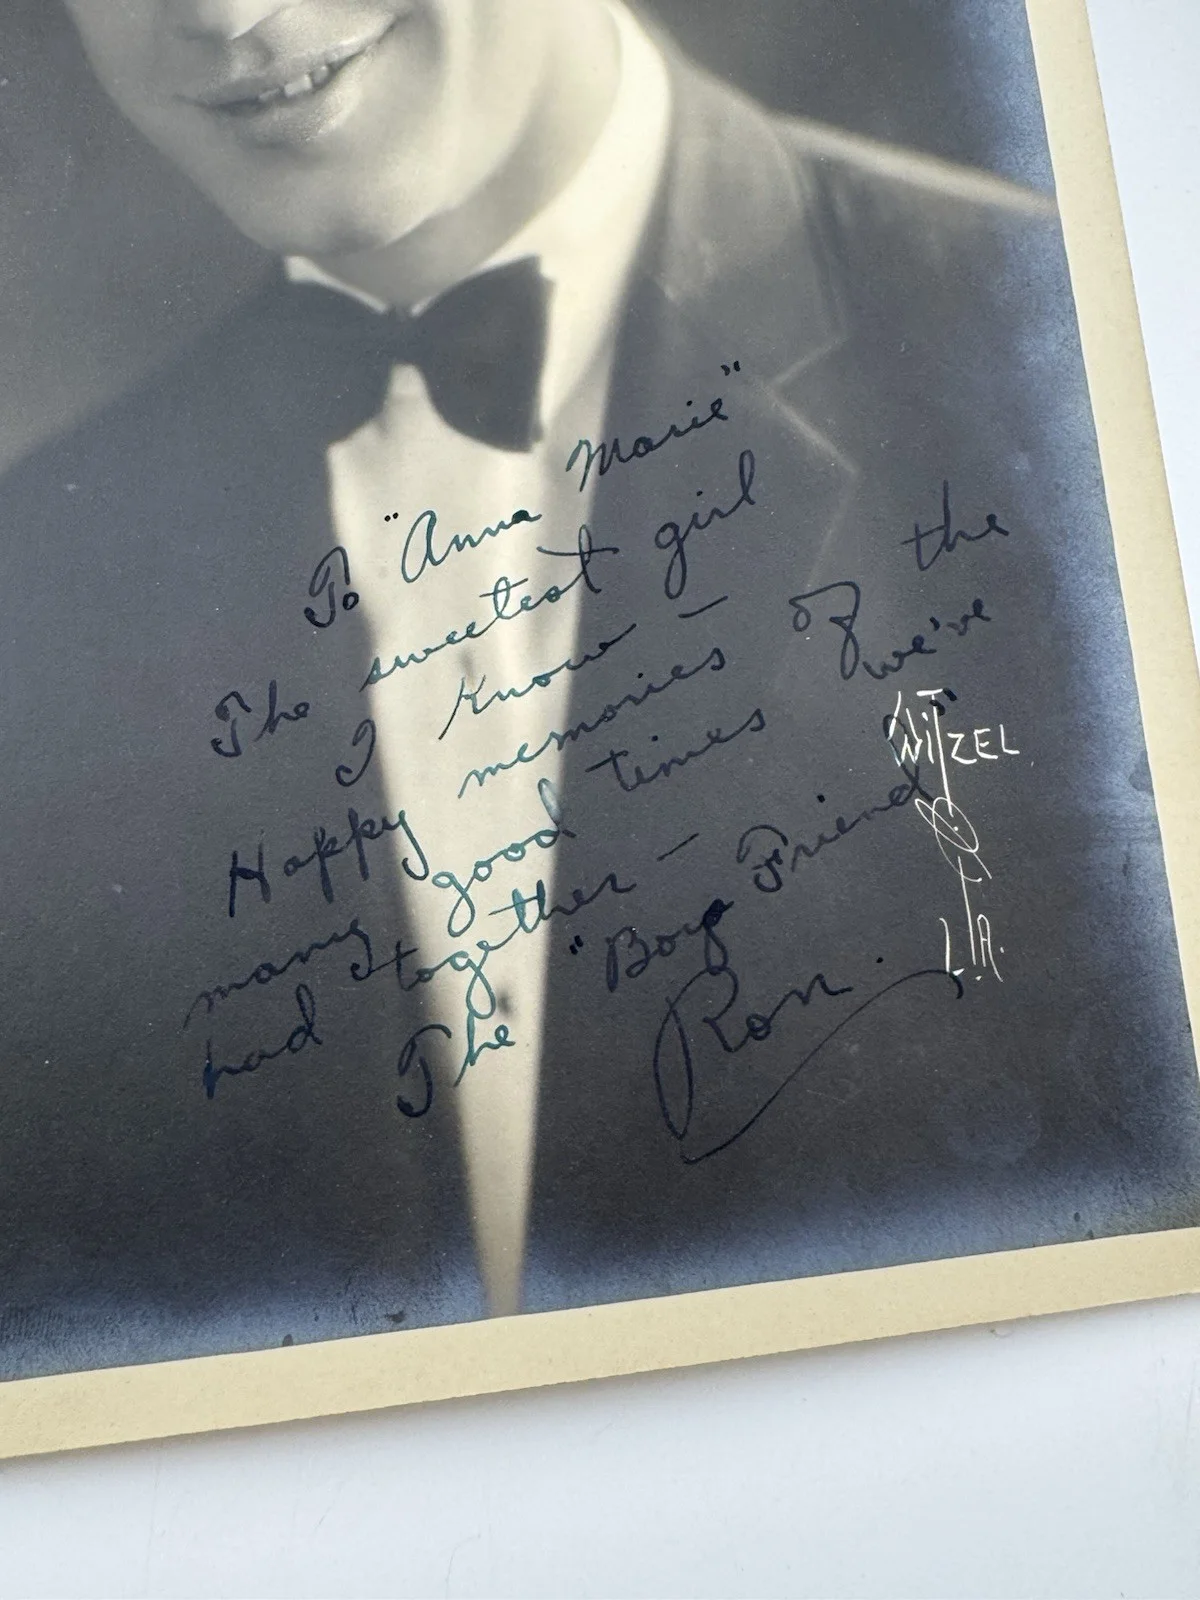 To "Anna Marie"
The sweetest girl
I know —
Happy memories of the
many good times we've
had together —
The "Boy Friend"
Ron.
WITZEL
L.A.